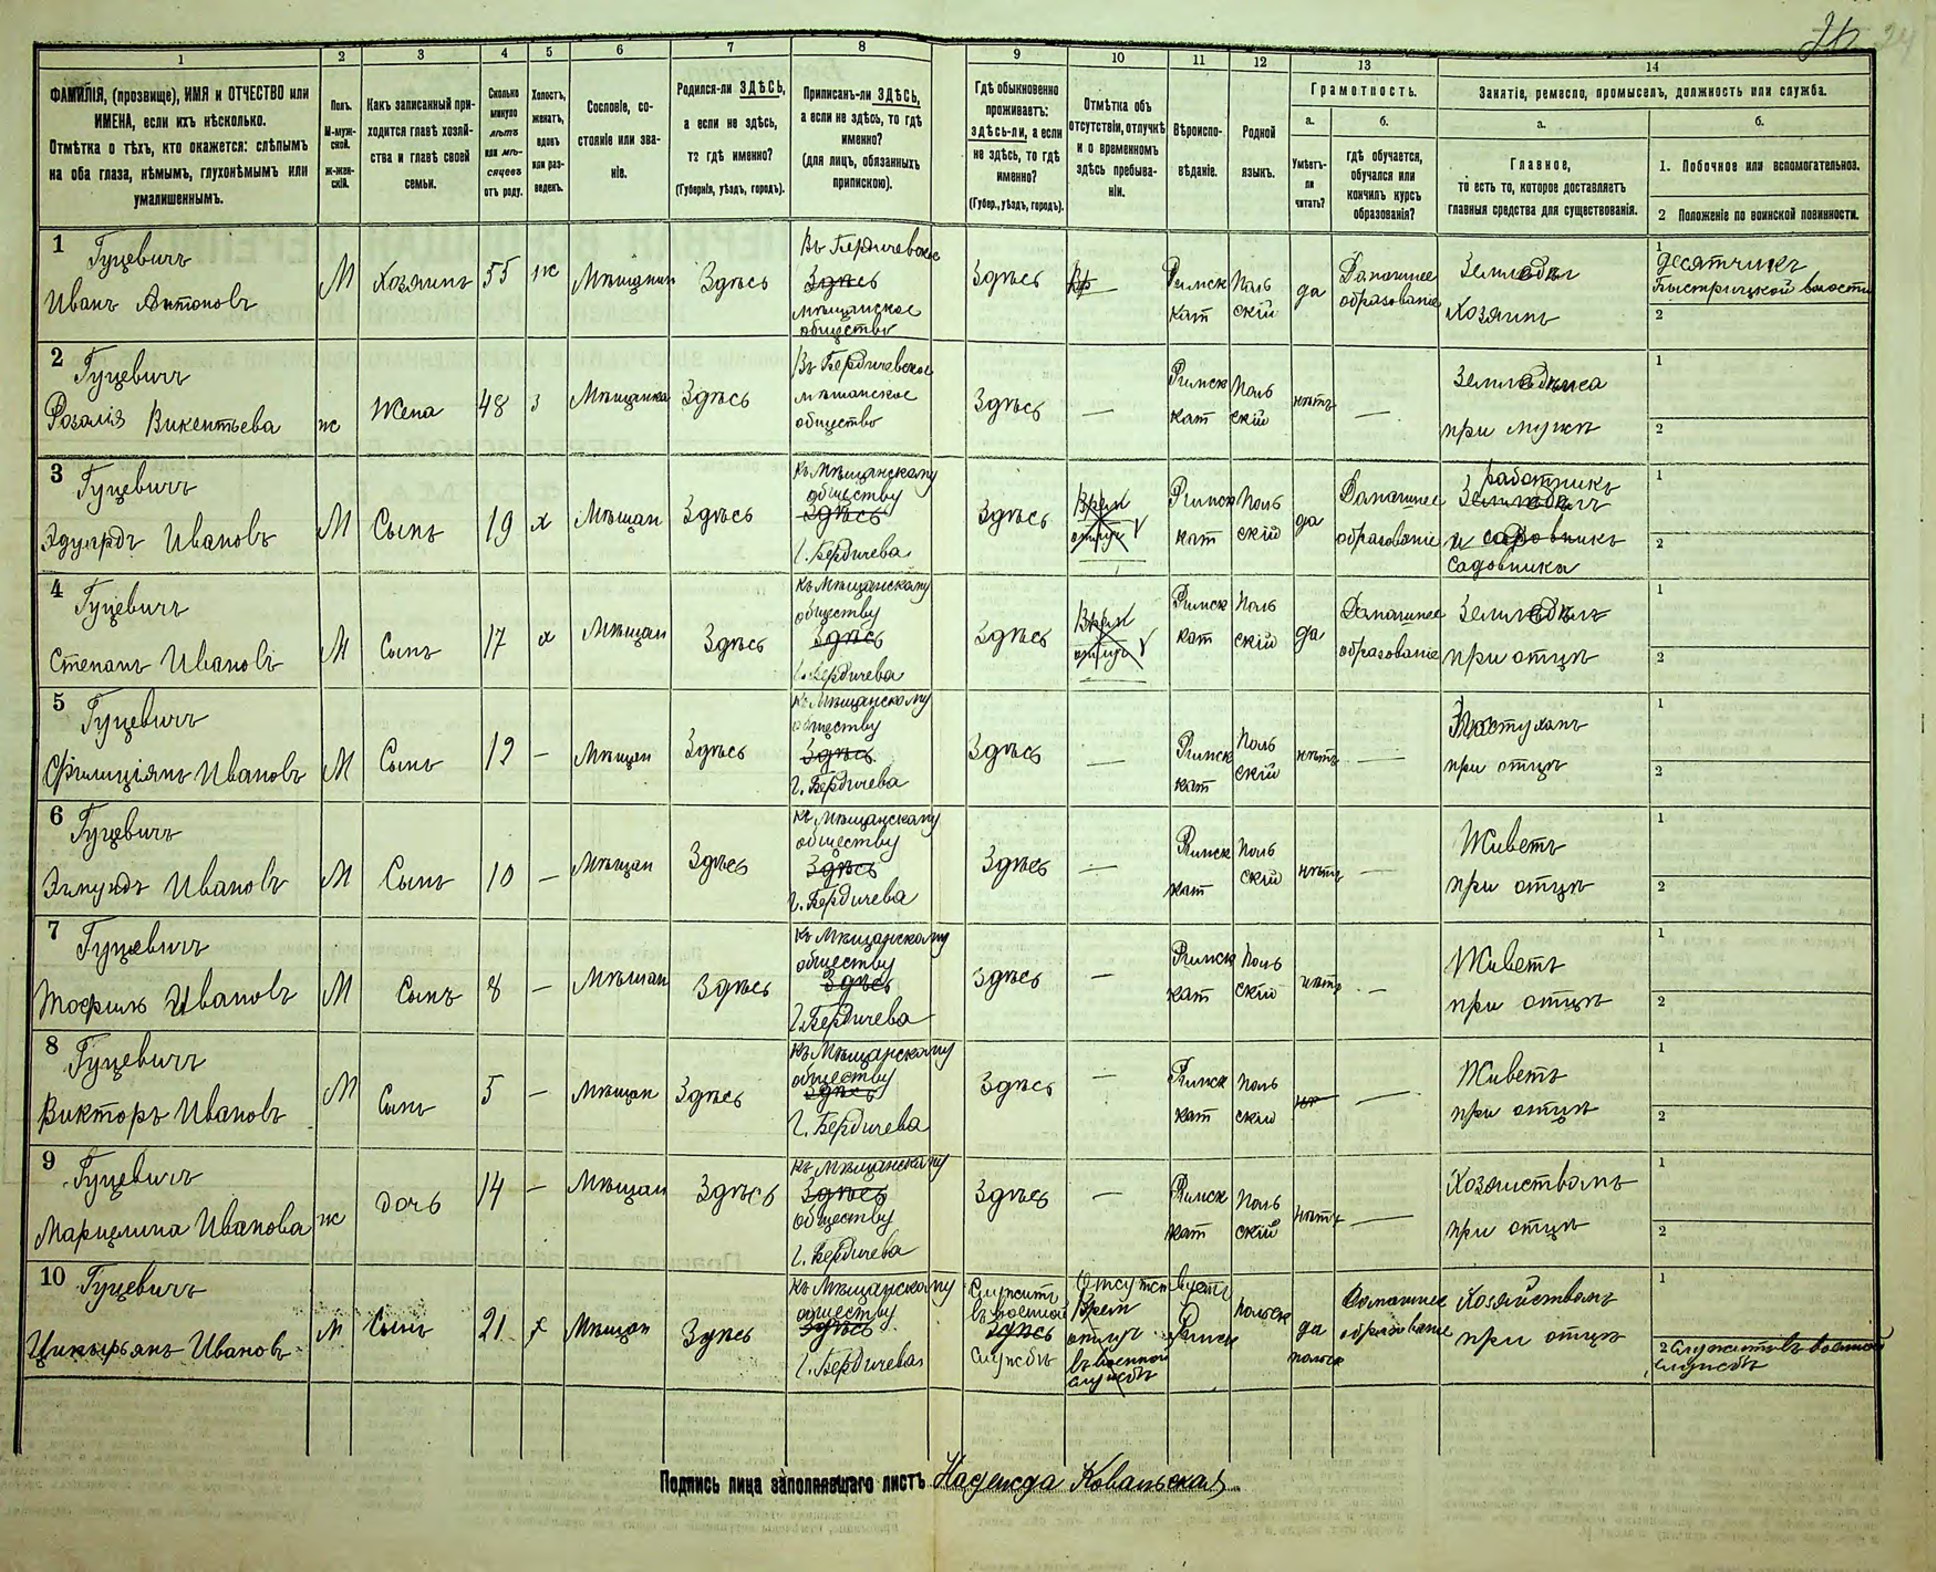 1
2
3
4
5
6
7
8
9
10
11
12
13
14
ФАМИЛІЯ, (прозвище), ИМЯ и ОТЧЕСТВО или
ИМЕНА, если ихъ нѣсколько.
Отмѣтка о тѣхъ, кто окажется: слѣпымъ
на оба глаза, нѣмымъ, глухонѣмымъ или
умалишеннымъ.
Полъ.
М-муж-
ской.
Ж-жен-
скій.
Какъ записанный при-
ходится главѣ хозяй-
ства и главѣ своей
семьи.
Сколько
минуло
лѣтъ
или мѣ-
сяцевъ
отъ роду.
Холостъ,
женатъ,
вдовъ
или раз-
веденъ.
Сословіе, со-
стояніе или зва-
ніе.
Родился-ли ЗДѢСЬ,
а если не здѣсь,
то гдѣ именно?
(Губернія, уѣздъ, городъ).
Приписанъ-ли ЗДѢСЬ,
а если не здѣсь, то гдѣ
именно?
(для лицъ, обязанныхъ
припискою).
Гдѣ обыкновенно
проживаетъ:
здѣсь-ли, а если
не здѣсь, то гдѣ
именно?
(Губер., уѣздъ, городъ).
Отмѣтка объ
отсутствіи, отлучкѣ
и о временномъ
здѣсь пребыва-
ніи.
Вѣроиспо-
вѣданіе.
Родной
языкъ.
Грамотность.
а.
Умѣетъ-
ли
читать?
б.
гдѣ обучается,
обучался или
кончилъ курсъ
образованія?
Занятіе, ремесло, промыселъ, должность или служба.
а.
Главное,
то есть то, которое доставляетъ
главныя средства для существованія.
б.
1. Побочное или вспомогательное.
2 Положеніе по воинской повинности.
1 Гуцевичъ
Иванъ Антоновъ
М
Хозяинъ
55
ж
Мѣщанин
Здѣсь
Въ Бердичевское
Здѣсь
мѣщанское
общество
Здѣсь
Римск
кат
Поль
скій
да
Домашнее
образованіе
Земледѣл
Хозяинъ
1
десятчикъ
Быстрицкой волости
2
2 Гуцевичъ
Розалія Викентьева
ж
Жена
48
з
Мѣщанка
Здѣсь
Въ Бердичевское
мѣщанское
общество
Здѣсь
—
Римск
кат
Поль
скій
нѣтъ
—
Земледѣлка
при мужѣ
1
2
3 Гуцевичъ
Эдуардъ Ивановъ
М
Сынъ
19
х
Мѣщан
Здѣсь
къ Мѣщанскому
обществу
Здѣсь
г. Бердичева
Здѣсь
Врем
отлуч
Римск
кат
Поль
скій
да
Домашнее
образованіе
работникъ
Земледѣлъ
и садовникъ
Садовника
1
2
4 Гуцевичъ
Степанъ Ивановъ
М
Сынъ
17
х
Мѣщан
Здѣсь
къ Мѣщанскому
обществу
Здѣсь
г. Бердичева
Здѣсь
Врем
отлуч
Римск
кат
Поль
скій
да
Домашнее
образованіе
Земледѣлъ
при отцѣ
1
2
5 Гуцевичъ
Филиціянъ Ивановъ
М
Сынъ
12
—
Мѣщан
Здѣсь
къ Мѣщанскому
обществу
Здѣсь
г. Бердичева
Здѣсь
—
Римск
кат
Поль
скій
нѣтъ
—
при отцѣ
1
2
6 Гуцевичъ
Эдмундъ Ивановъ
М
Сынъ
10
—
Мѣщан
Здѣсь
къ Мѣщанскому
обществу
Здѣсь
г. Бердичева
Здѣсь
—
Римск
кат
Поль
скій
нѣтъ
—
Живетъ
при отцѣ
1
2
7 Гуцевичъ
Тофиль Ивановъ
М
Сынъ
8
—
Мѣщан
Здѣсь
къ Мѣщанскому
обществу
Здѣсь
г. Бердичева
Здѣсь
—
Римск
кат
Поль
скій
нѣтъ
—
Живетъ
при отцѣ
1
2
8 Гуцевичъ
Викторъ Ивановъ
М
Сынъ
5
—
Мѣщан
Здѣсь
къ Мѣщанскому
обществу
Здѣсь
г. Бердичева
Здѣсь
—
Римск
кат
Поль
скій
—
Живетъ
при отцѣ
1
2
9 Гуцевичъ
Марцелина Иванова
ж
дочь
14
—
Мѣщан
Здѣсь
къ Мѣщанскому
Здѣсь
обществу
г. Бердичева
Здѣсь
—
Римск
кат
Поль
скій
нѣтъ
—
Хозяиствомъ
при отцѣ
1
2
10 Гуцевичъ
Ивановъ
М
Сынъ
21
х
Мѣщан
Здѣсь
къ Мѣщанскому
обществу
Здѣсь
г. Бердичева
Служитъ
въ военной
Здѣсь
службѣ
Отсутствуетъ
Врем
отлуч
въ военной
службѣ
Римск
польск
да
польск
Домашнее
образованіе
Хозяйствомъ
при отцѣ
1
2 Служитъ въ военной
службѣ
Подпись лица заполнявшаго листъ Надежда Ковальская